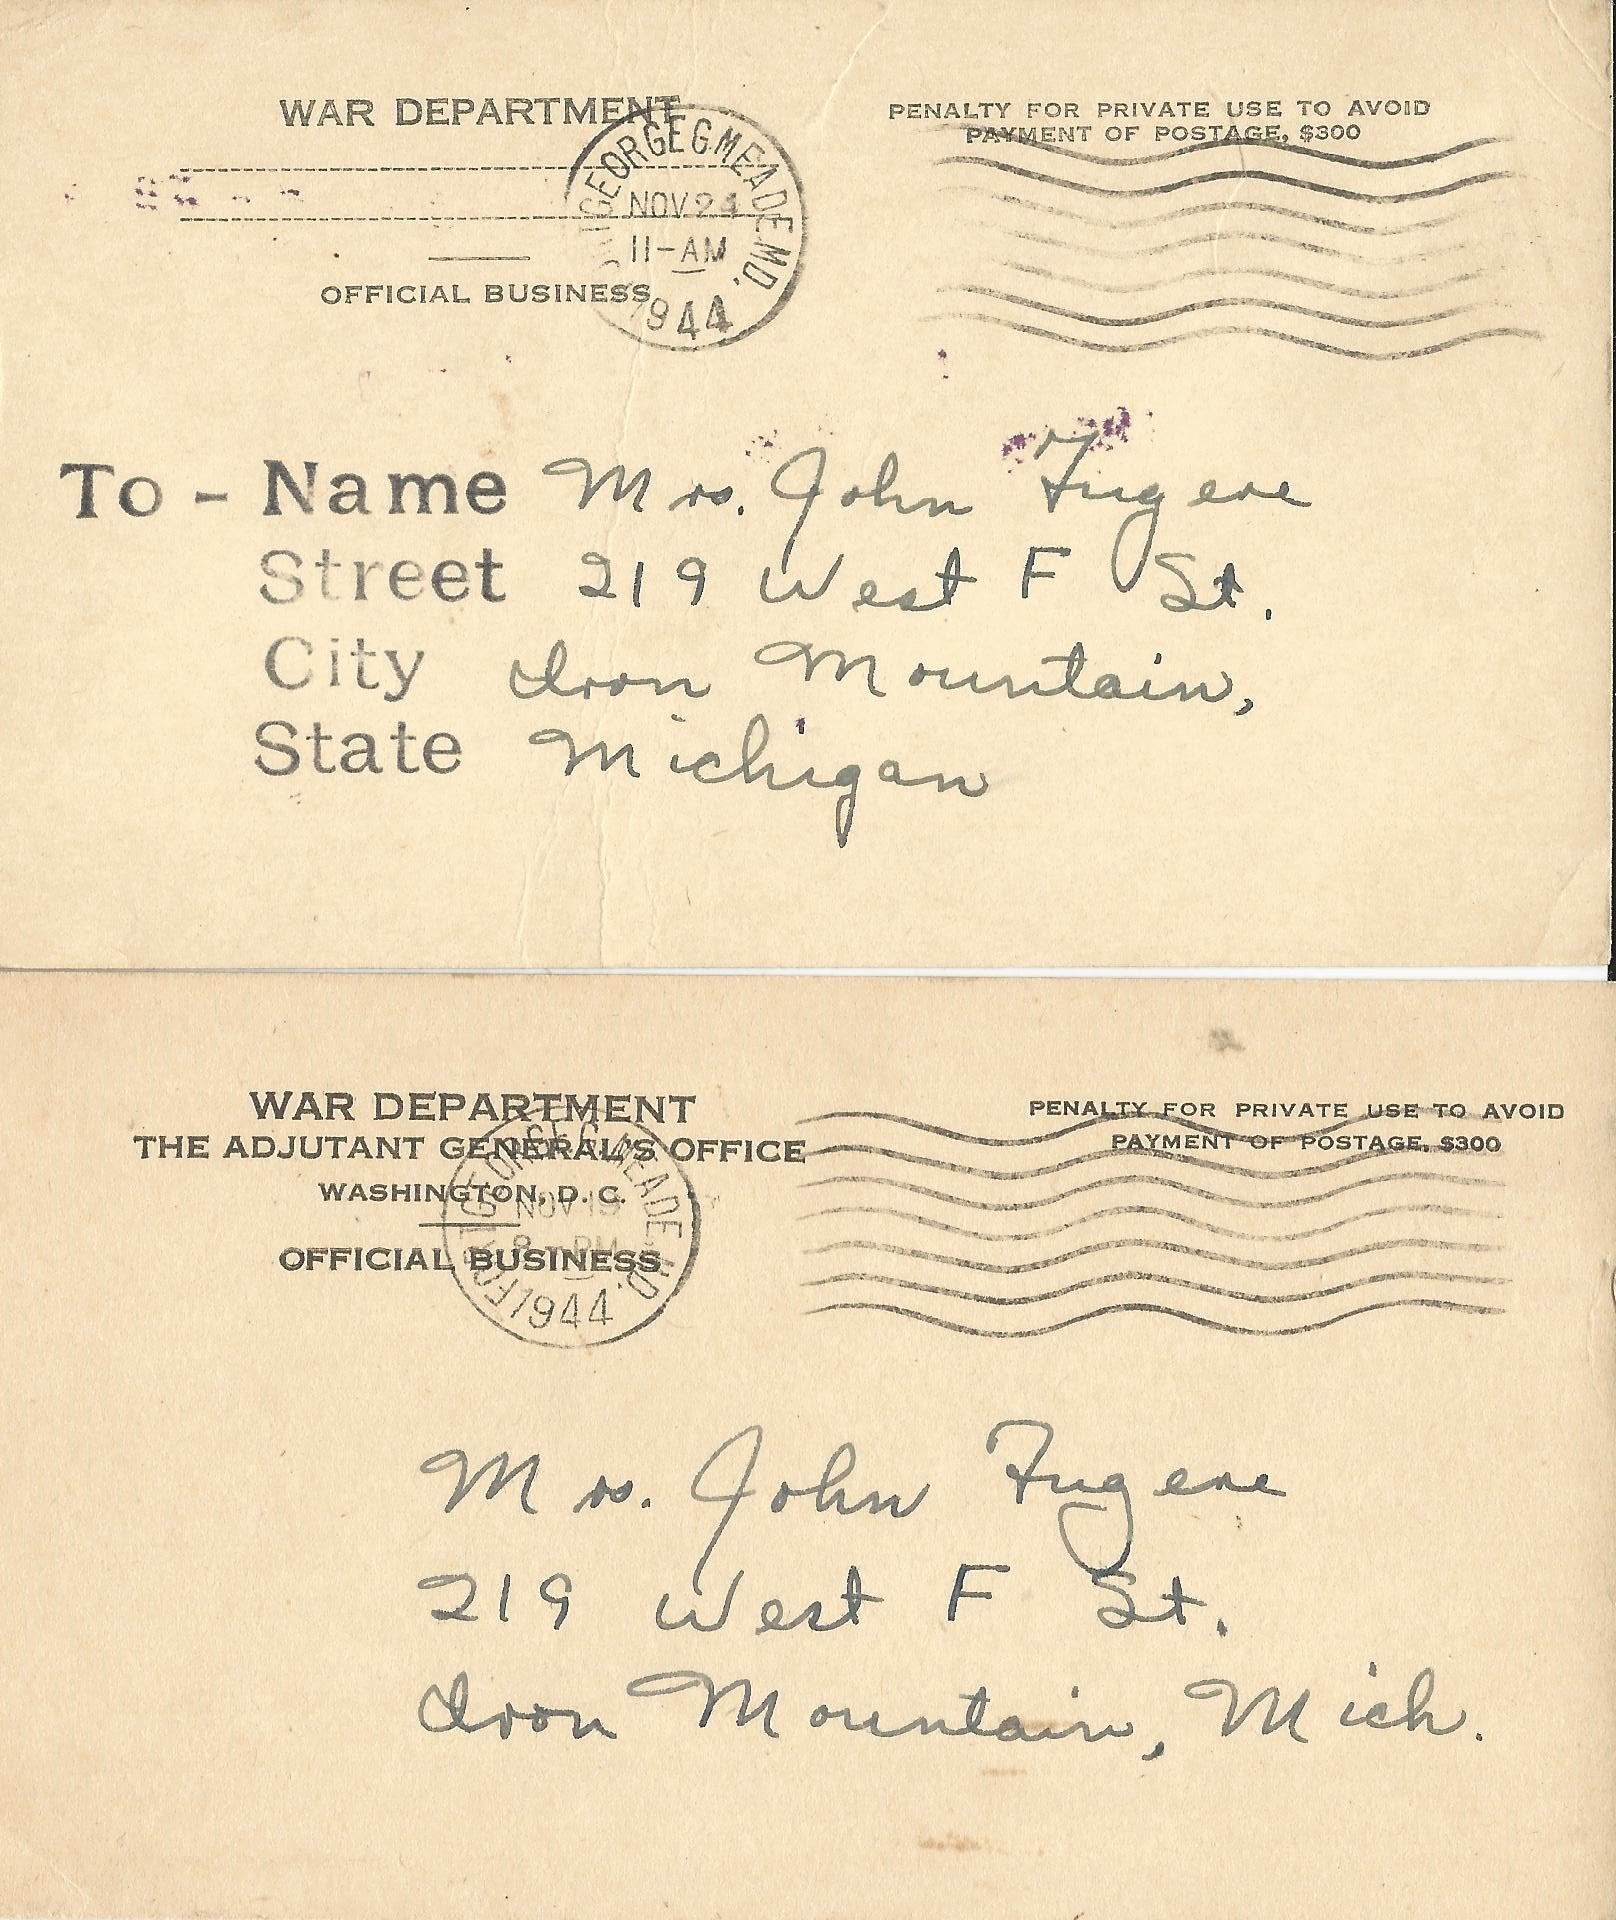 WAR DEPARTMENT
PENALTY FOR PRIVATE USE TO AVOID
PAYMENT OF POSTAGE, $300
GEORGE G. MEADE, MD.
NOV 24
11-AM
1944
OFFICIAL BUSINESS
To - Name Mrs. John Fugere
Street 219 West F St.
City Iron Mountain,
State Michigan
WAR DEPARTMENT
THE ADJUTANT GENERAL'S OFFICE
WASHINGTON, D. C.
OFFICIAL BUSINESS
PENALTY FOR PRIVATE USE TO AVOID
PAYMENT OF POSTAGE, $300
GEORGE G. MEADE, MD.
NOV
PM
1944
Mrs. John Fugere
219 West F St.
Iron Mountain, Mich.